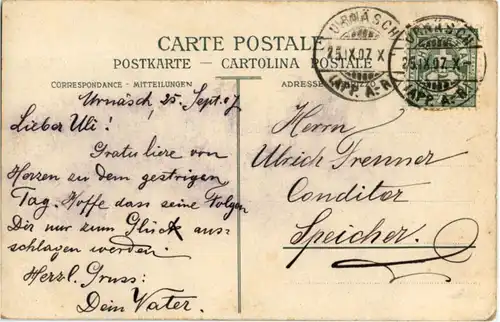 CARTE POSTALE
POSTKARTE – CARTOLINA POSTALE
CORRESPONDANCE - MITTEILUNGEN
ADRESSE
URNÄSCH
25.IX.07. X
(APP. A.-R.)
URNÄSCH
25.IX.07. X
(APP. A.-R.)
Urnäsch, 25. Sept. 07
Lieber Uli!
Gratuliere von
Herzen zu dem gestrigen
Tag. Hoffe dass seine Folgen
Dir nur zum Glück aus-
schlagen werden.
Herzl. Gruss:
Dein Vater.
Herrn
Ulrich Frenner
Conditor
Speicher.